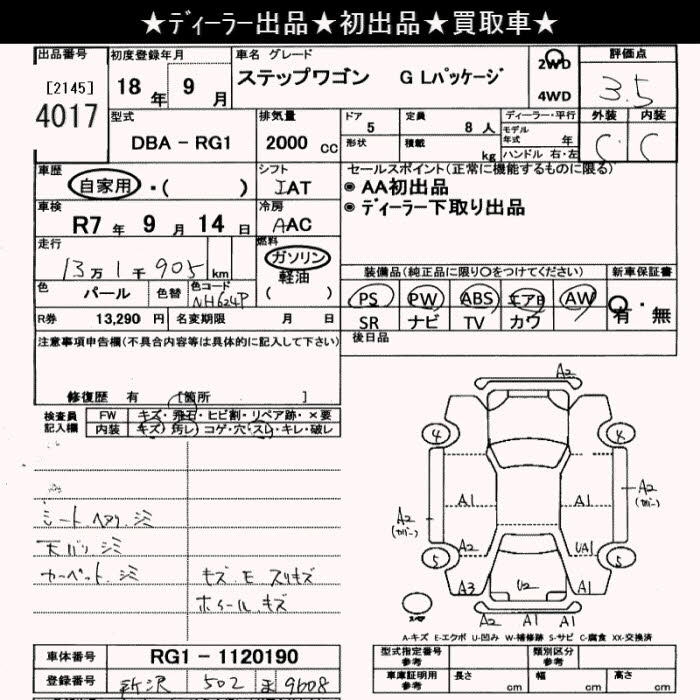 ★ﾃﾞｨｰﾗｰ出品★初出品★買取車★
出品番号 初度登録年月 車名 グレード 評価点
[2145] 18 年 9 月 ステップワゴン G Lパッケージ 2WD 3.5
4017 4WD
型式 排気量 ドア 定員 ディーラー・平行 外装 内装
DBA - RG1 2000 cc 5 8 人 モデル年式 年 C C
形状 積載 kg ハンドル 右・左
車歴 シフト セールスポイント(正常に機能するものに限る)
自家用 ・( ) IAT ◉ AA初出品
車検 冷房 ◉ ﾃﾞｨｰﾗｰ下取り出品
R7 年 9 月 14 日 AAC
走行 燃料
13万1千905 km ガソリン 装備品(純正品に限り○をつけてください) 新車保証書
軽油
色 パール 色替 色コード NH624P ( ) PS PW ABS エアB AW 有・無
R券 13,290 円 名変期限 月 日 SR ナビ TV カワ
注意事項申告欄(不具合内容等は具体的に記入して下さい) 後日品
修復歴 有 [箇所 ]
検査員 FW キズ・飛石・ヒビ割・リペア跡・×要
記入欄 内装 キズ・汚レ・コゲ・穴・スレ・キレ・破レ
A2
4 4
A1 A1
A2 (カバー) A2 (カバー)
シート ヘタリ シミ
天バリ シミ A2 UA1
5 5
カーペット シミ キズ E スリキズ A3 U2 A1
ホイール キズ
A2 A1 A1
A-キズ E-エクボ U-凹み W-補修跡 S-サビ C-腐食 XX-交換済
車体番号 RG1 - 1120190 型式指定番号 参考 類別区分 参考
登録番号 所沢 502 ま 9608 車庫証明用 参考 長さ cm 幅 cm 高さ cm